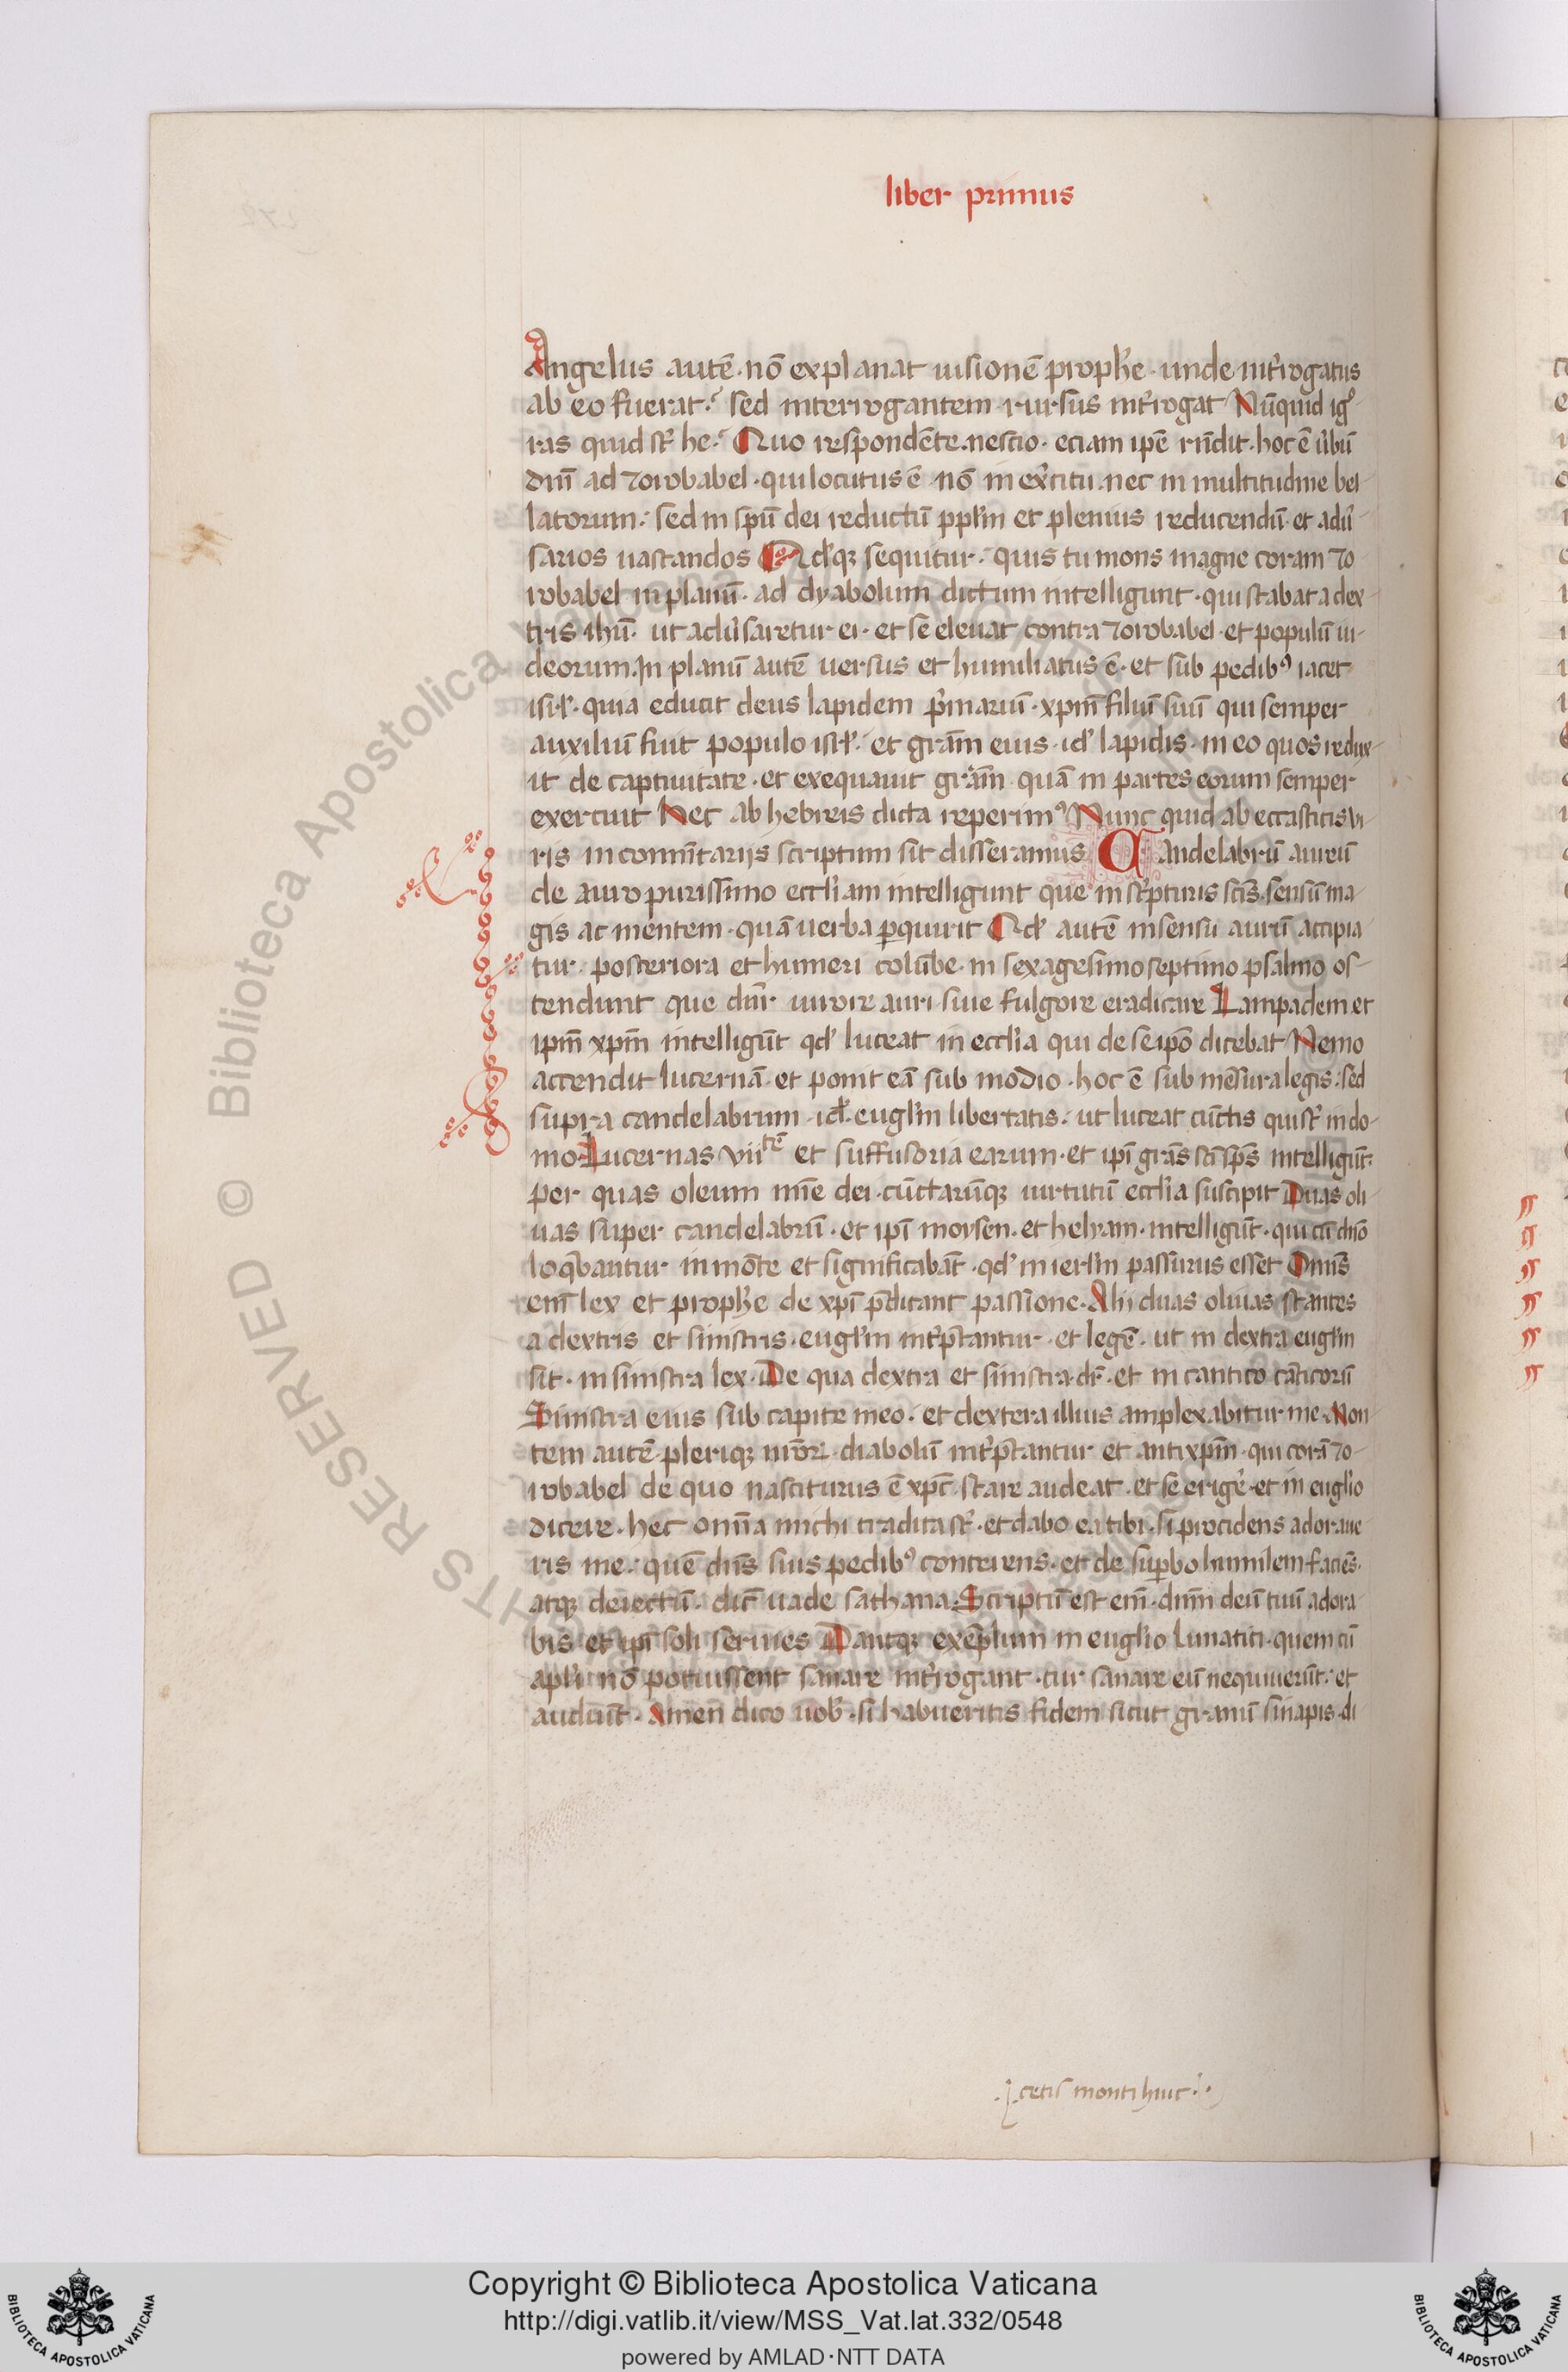 liber primus
Angelus autē. nō explanat uisionē prophe᷑. unde int᷑rogatus
ab eo fuerat. sed interrogantem rursus int᷑rogat Nūquid igº
ras quid st᷑ he. Quo respondēte. nescio. eciam ipē rn̄dit. hoc ē ūbū
dn̄i ad zorobabel. qui locutus ē. nō in ex᷑citu. nec in multitudine bel
latorum. sed in sp̄u dei reductū pp̄lm et plenius reducendū. et adu᷑
sarios uastandos Qd᷑qꝫ sequitur. quis tu mons magne coram zo
robabel in planū. ad dyabolum dictum intelligunt. qui stabat a dex
tris ihū. ut adu᷑saretur ei. et se eleuat contra zorobabel. et populū iu
deorum. In planū autē uersus et humiliatus ē. et sub pedibꝰ iacet
isrl᷑. quia educit deus lapidem p᷑marium. xp̄m filiū suū qui semper
auxiliū fuit populo isrl᷑. et grām eius. id᷑ lapidis. in eo quos redux
it de captiuitate. et exequauit grām quā in partes eorum semper
exercuit Hec ab hebreis dicta reperimꝰ Nunc quid ab ecc̄asticis ui
ris in comm̄tarijs scriptum sit disseramus Candelabrū aureū
de auro purissimo eccl᷑iam intelligunt que in sc᷑pturis scīs. sensū ma
gis ac mentem. quā uerba ꝑquirit Qd᷑ autē in sensu aurū accipia
tur. posteriora et humeri colūbe. in sexagesimo septimo psalmo os
tendunt que dn̄r. uirore auri siue fulgore eradicare Lampadem et
ipm̄ xp̄m intelligūt qd᷑ luceat in eccl᷑ia qui de se ip̄o dicebat Nemo
accendit lucernā. et ponit eā sub modio. hoc ē sub mēsura legis. sed
supra candelabrum. id᷑. eugl᷑m libertatis. ut luceat cūctis qui st᷑ in do
mo. Lucernas vii tē et suffusoria earum. et ip̄i grās sc̄i sp̄s intelligūt.
per quas oleum mīe dei. cūctarūqꝫ uirtutū eccl᷑ia suscipit Duas oli
uas super candelabrū. et ip̄i moysen. et helyam. intelligūt. qui cū dn̄o
loq᷑bantur in mōte et significabāt. qd᷑ in ierl᷑m passurus esset Omīs
em̄ lex et prophe᷑ de xp̄i p᷑dicant passione. Alij duas oliuas stantes
a dextris et sinistris. eugl᷑m int᷑p᷑tantur. et legē. ut in dextra eugl᷑m
sit. in sinistra lex. De qua dextra et sinistra. dr᷑. et in cantico cāticorū
Sinistra eius sub capite meo. et dextera illius amplexabitur me. Mon
tem autē. pleriqꝫ nr̄oꝝ. diabolū int᷑p᷑tantur et antixp̄m. qui corā zo
robabel de quo nasciturus ē xp̄c. stare audeat. et se erige᷑. et in eugl᷑io
dicere. hec omīa michi tradita st᷑. et dabo ea tibi. si procidens adoraue
ris me. quē dn̄s suis pedibꝰ conterens. et de suꝑbo humilem faciēs.
atqꝫ deiectū. dic̄ uade sathana. Scriptū est em̄. dn̄m deū tuū adora
bis et ip̄i soli seruies Dantqꝫ exēplum in eugl᷑io lunatici. quem cū
apl᷑i nō potuissent sanare int᷑rogant. cur sanare eū nequiuerūt. et
audiūt. Amen dico uob᷑. si habueritis fidem sicut granū sinapis. di
cetis monti huic
Copyright © Biblioteca Apostolica Vaticana
http://digi.vatlib.it/view/MSS_Vat.lat.332/0548
powered by AMLAD·NTT DATA